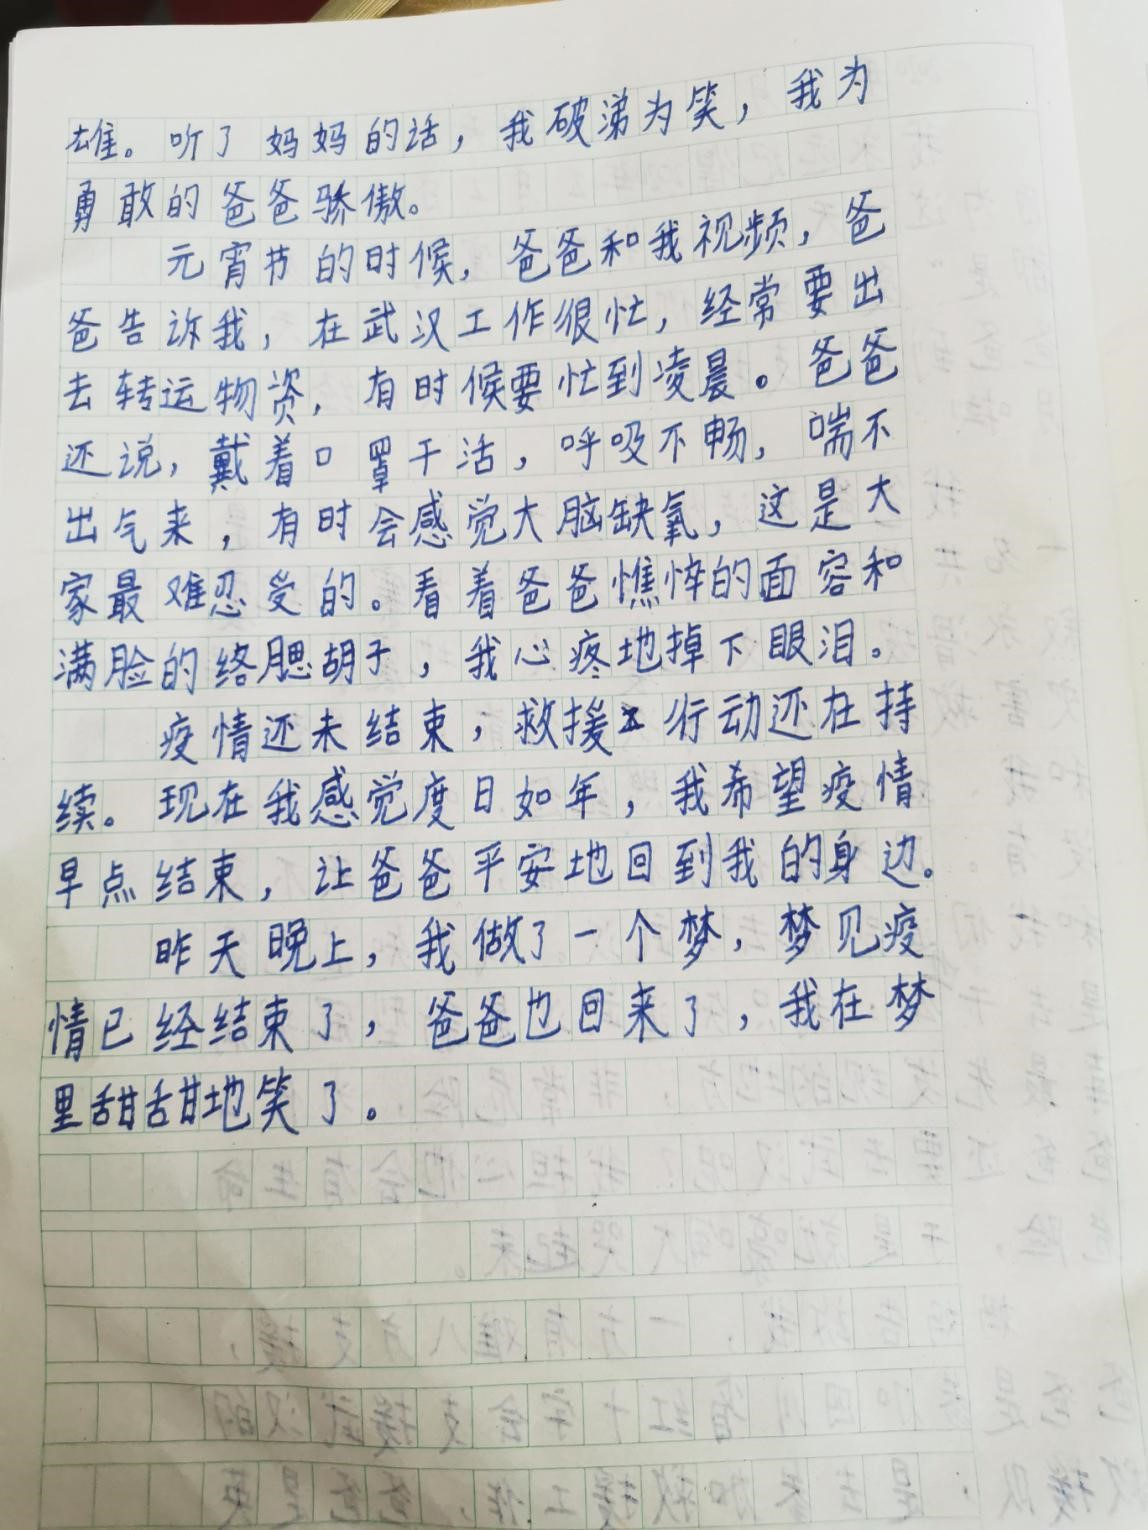 雄。听了妈妈的话，我破涕为笑，我为
勇敢的爸爸骄傲。
元宵节的时候，爸爸和我视频，爸
爸告诉我，在武汉工作很忙，经常要出
去转运物资，有时候要忙到凌晨。爸爸
还说，戴着口罩干活，呼吸不畅，喘不
出气来，有时会感觉大脑缺氧，这是大
家最难忍受的。看着爸爸憔悴的面容和
满脸的络腮胡子，我心疼地掉下眼泪。
疫情还未结束，救援行动还在持
续。现在我感觉度日如年，我希望疫情
早点结束，让爸爸平安地回到我的身边。
昨天晚上，我做了一个梦，梦见疫
情已经结束了，爸爸也回来了，我在梦
里甜甜地笑了。